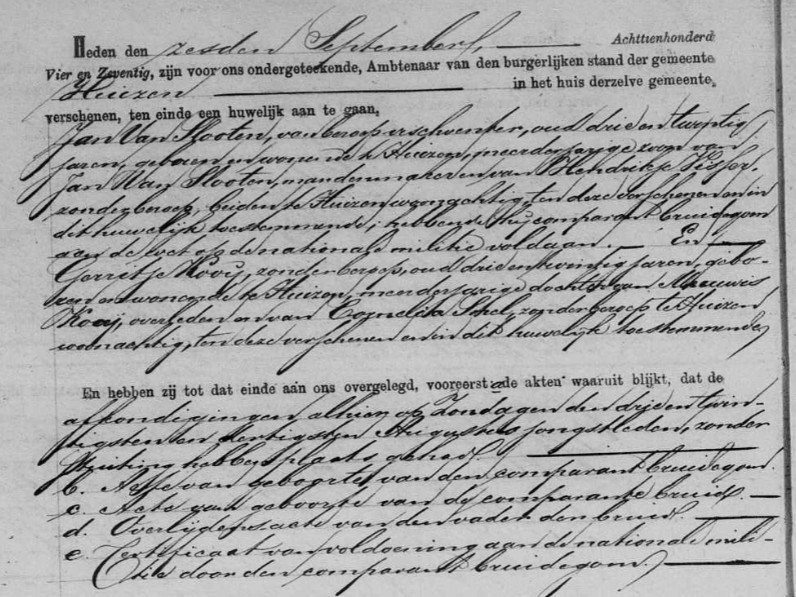 Heden den zesden September, Achttienhonderd
Vier en Zeventig, zijn voor ons ondergeteekende, Ambtenaar van den burgerlijken stand der gemeente
Huizen in het huis derzelve gemeente,
verschenen, ten einde een huwelijk aan te gaan,
Jan Van Slooten, van beroep schenker, oud drie en twintig
jaren, geboren en wonende te Huizen, meerderjarige zoon van
Jan Van Slooten, mandenmaker en van Hendrikje Visser,
zonder beroep, beiden te Huizen woonachtig, ten deze verschenen en in
dit huwelijk toestemmende; hebbende hij comparant bruidegom
aan de wet op de nationale militie voldaan. En
Gerritje Kooij, zonder beroep, oud drie en twintig jaren, gebo-
ren en wonende te Huizen, meerderjarige dochter van Meeuwis
Kooij, overleden en van Cornelia Schel, zonder beroep te Huizen
woonachtig, ten deze verschenen en in dit huwelijk toestemmende
En hebben zij tot dat einde aan ons overgelegd, vooreerst de akten waaruit blijkt, dat de
afkondigingen alhier op Zondagen den drie en twin-
tigsten en dertigsten Augustus jongstleden, zonder
stuiting hebben plaats gehad.
b. Acte van geboorte van den comparant bruidegom.
c. Acte van geboorte van de comparante bruid.
d. Overlijdensacte van den vader der bruid.
e. Certificaat van voldoening aan de nationale mili-
tie door den comparant bruidegom.